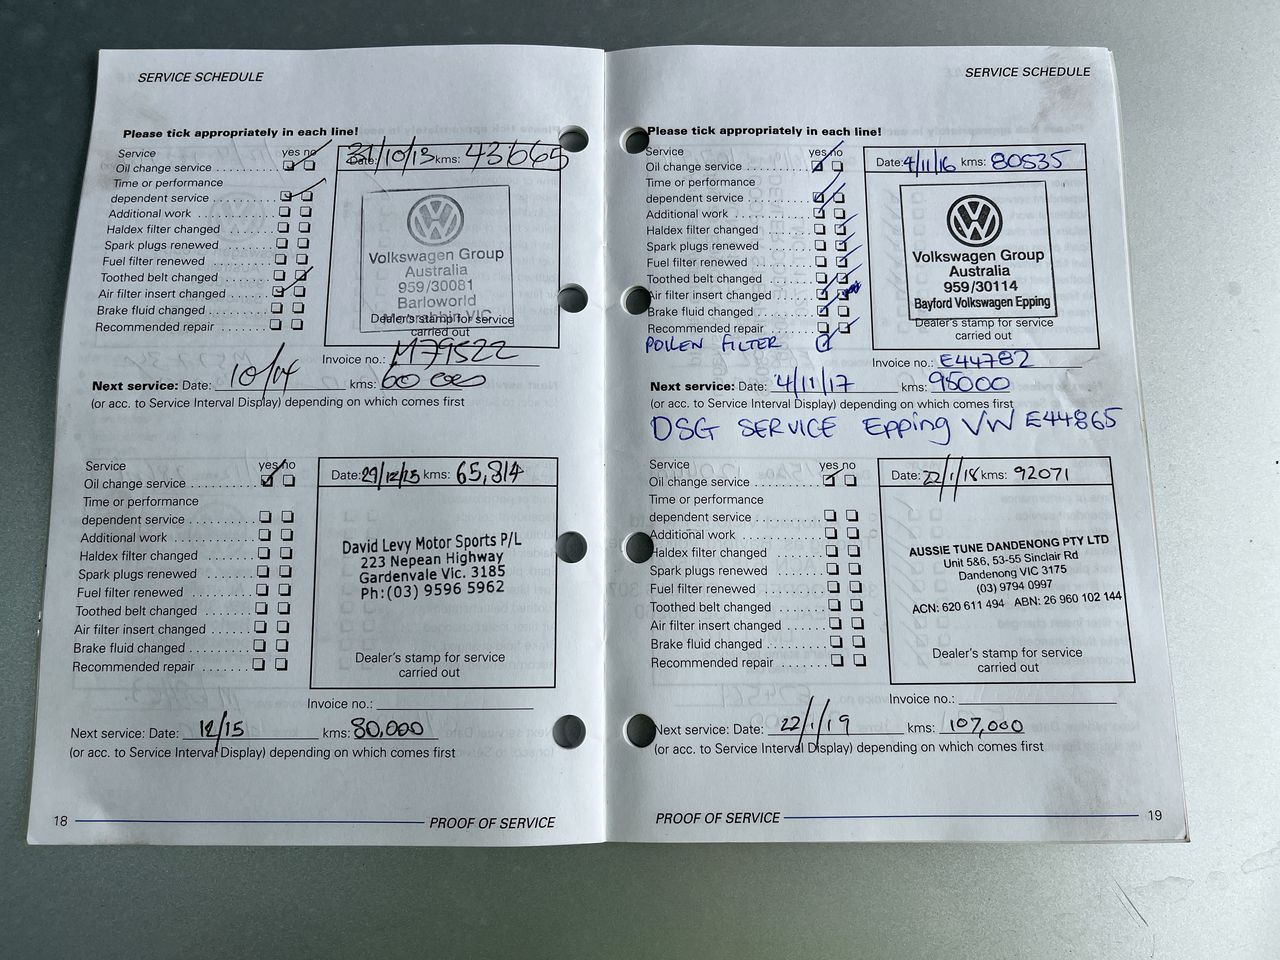 SERVICE SCHEDULE
Please tick appropriately in each line!
Service yes no
Oil change service
Time or performance
dependent service
Additional work
Haldex filter changed
Spark plugs renewed
Fuel filter renewed
Toothed belt changed
Air filter insert changed
Brake fluid changed
Recommended repair
Date: 31/10/13 kms:
Volkswagen Group
Australia
959/30081
Barloworld
Dealer's stamp for service
carried out
Invoice no.: M79522
Next service: Date: 10/14 kms: 60 000
(or acc. to Service Interval Display) depending on which comes first
Service yes no
Oil change service
Time or performance
dependent service
Additional work
Haldex filter changed
Spark plugs renewed
Fuel filter renewed
Toothed belt changed
Air filter insert changed
Brake fluid changed
Recommended repair
Date: kms: 65,814
David Levy Motor Sports P/L
223 Nepean Highway
Gardenvale Vic. 3185
Ph:(03) 9596 5962
Dealer's stamp for service
carried out
Invoice no.:
Next service: Date: 12/15 kms: 80,000
(or acc. to Service Interval Display) depending on which comes first
18 PROOF OF SERVICE
SERVICE SCHEDULE
Please tick appropriately in each line!
Service yes no
Oil change service
Time or performance
dependent service
Additional work
Haldex filter changed
Spark plugs renewed
Fuel filter renewed
Toothed belt changed
Air filter insert changed
Brake fluid changed
Recommended repair
POLLEN FILTER
Date: 4/11/16 kms: 80535
Volkswagen Group
Australia
959/30114
Bayford Volkswagen Epping
Dealer's stamp for service
carried out
Invoice no.: E44782
Next service: Date: 4/11/17 kms: 95000
(or acc. to Service Interval Display) depending on which comes first
DSG SERVICE Epping VW E44865
Service yes no
Oil change service
Time or performance
dependent service
Additional work
Haldex filter changed
Spark plugs renewed
Fuel filter renewed
Toothed belt changed
Air filter insert changed
Brake fluid changed
Recommended repair
Date: 22/1/18 kms: 92071
AUSSIE TUNE DANDENONG PTY LTD
Unit 5&6, 53-55 Sinclair Rd
Dandenong VIC 3175
(03) 9794 0997
ACN: 620 611 494 ABN: 26 960 102 144
Dealer's stamp for service
carried out
Invoice no.:
Next service: Date: 22/1/19 kms: 107,000
(or acc. to Service Interval Display) depending on which comes first
PROOF OF SERVICE 19